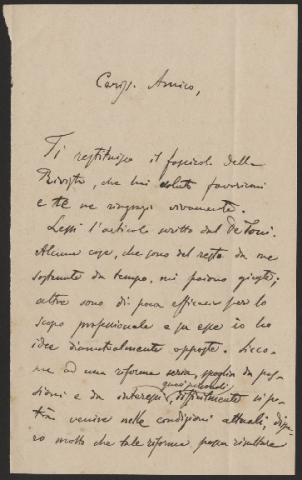 Cariss. Amico,
Ti restituisco il fascicolo della
Rivista, che hai voluto favorirmi
e te ne ringrazio vivamente.
Lessi l'articolo scritto dal De Toni.
Alcune cose, che sono del resto da me
sostenute da tempo, mi paiono giuste;
altre sono di poca efficacia per lo
scopo professionale e su esse io ho
idee diametralmente opposte. Sicco-
me ad una riforma seria, spoglia da pas-
sioni e da interessi, difficilmente si po-
trà venire nelle condizioni attuali, dispe-
ro molto che tale riforma possa risultare